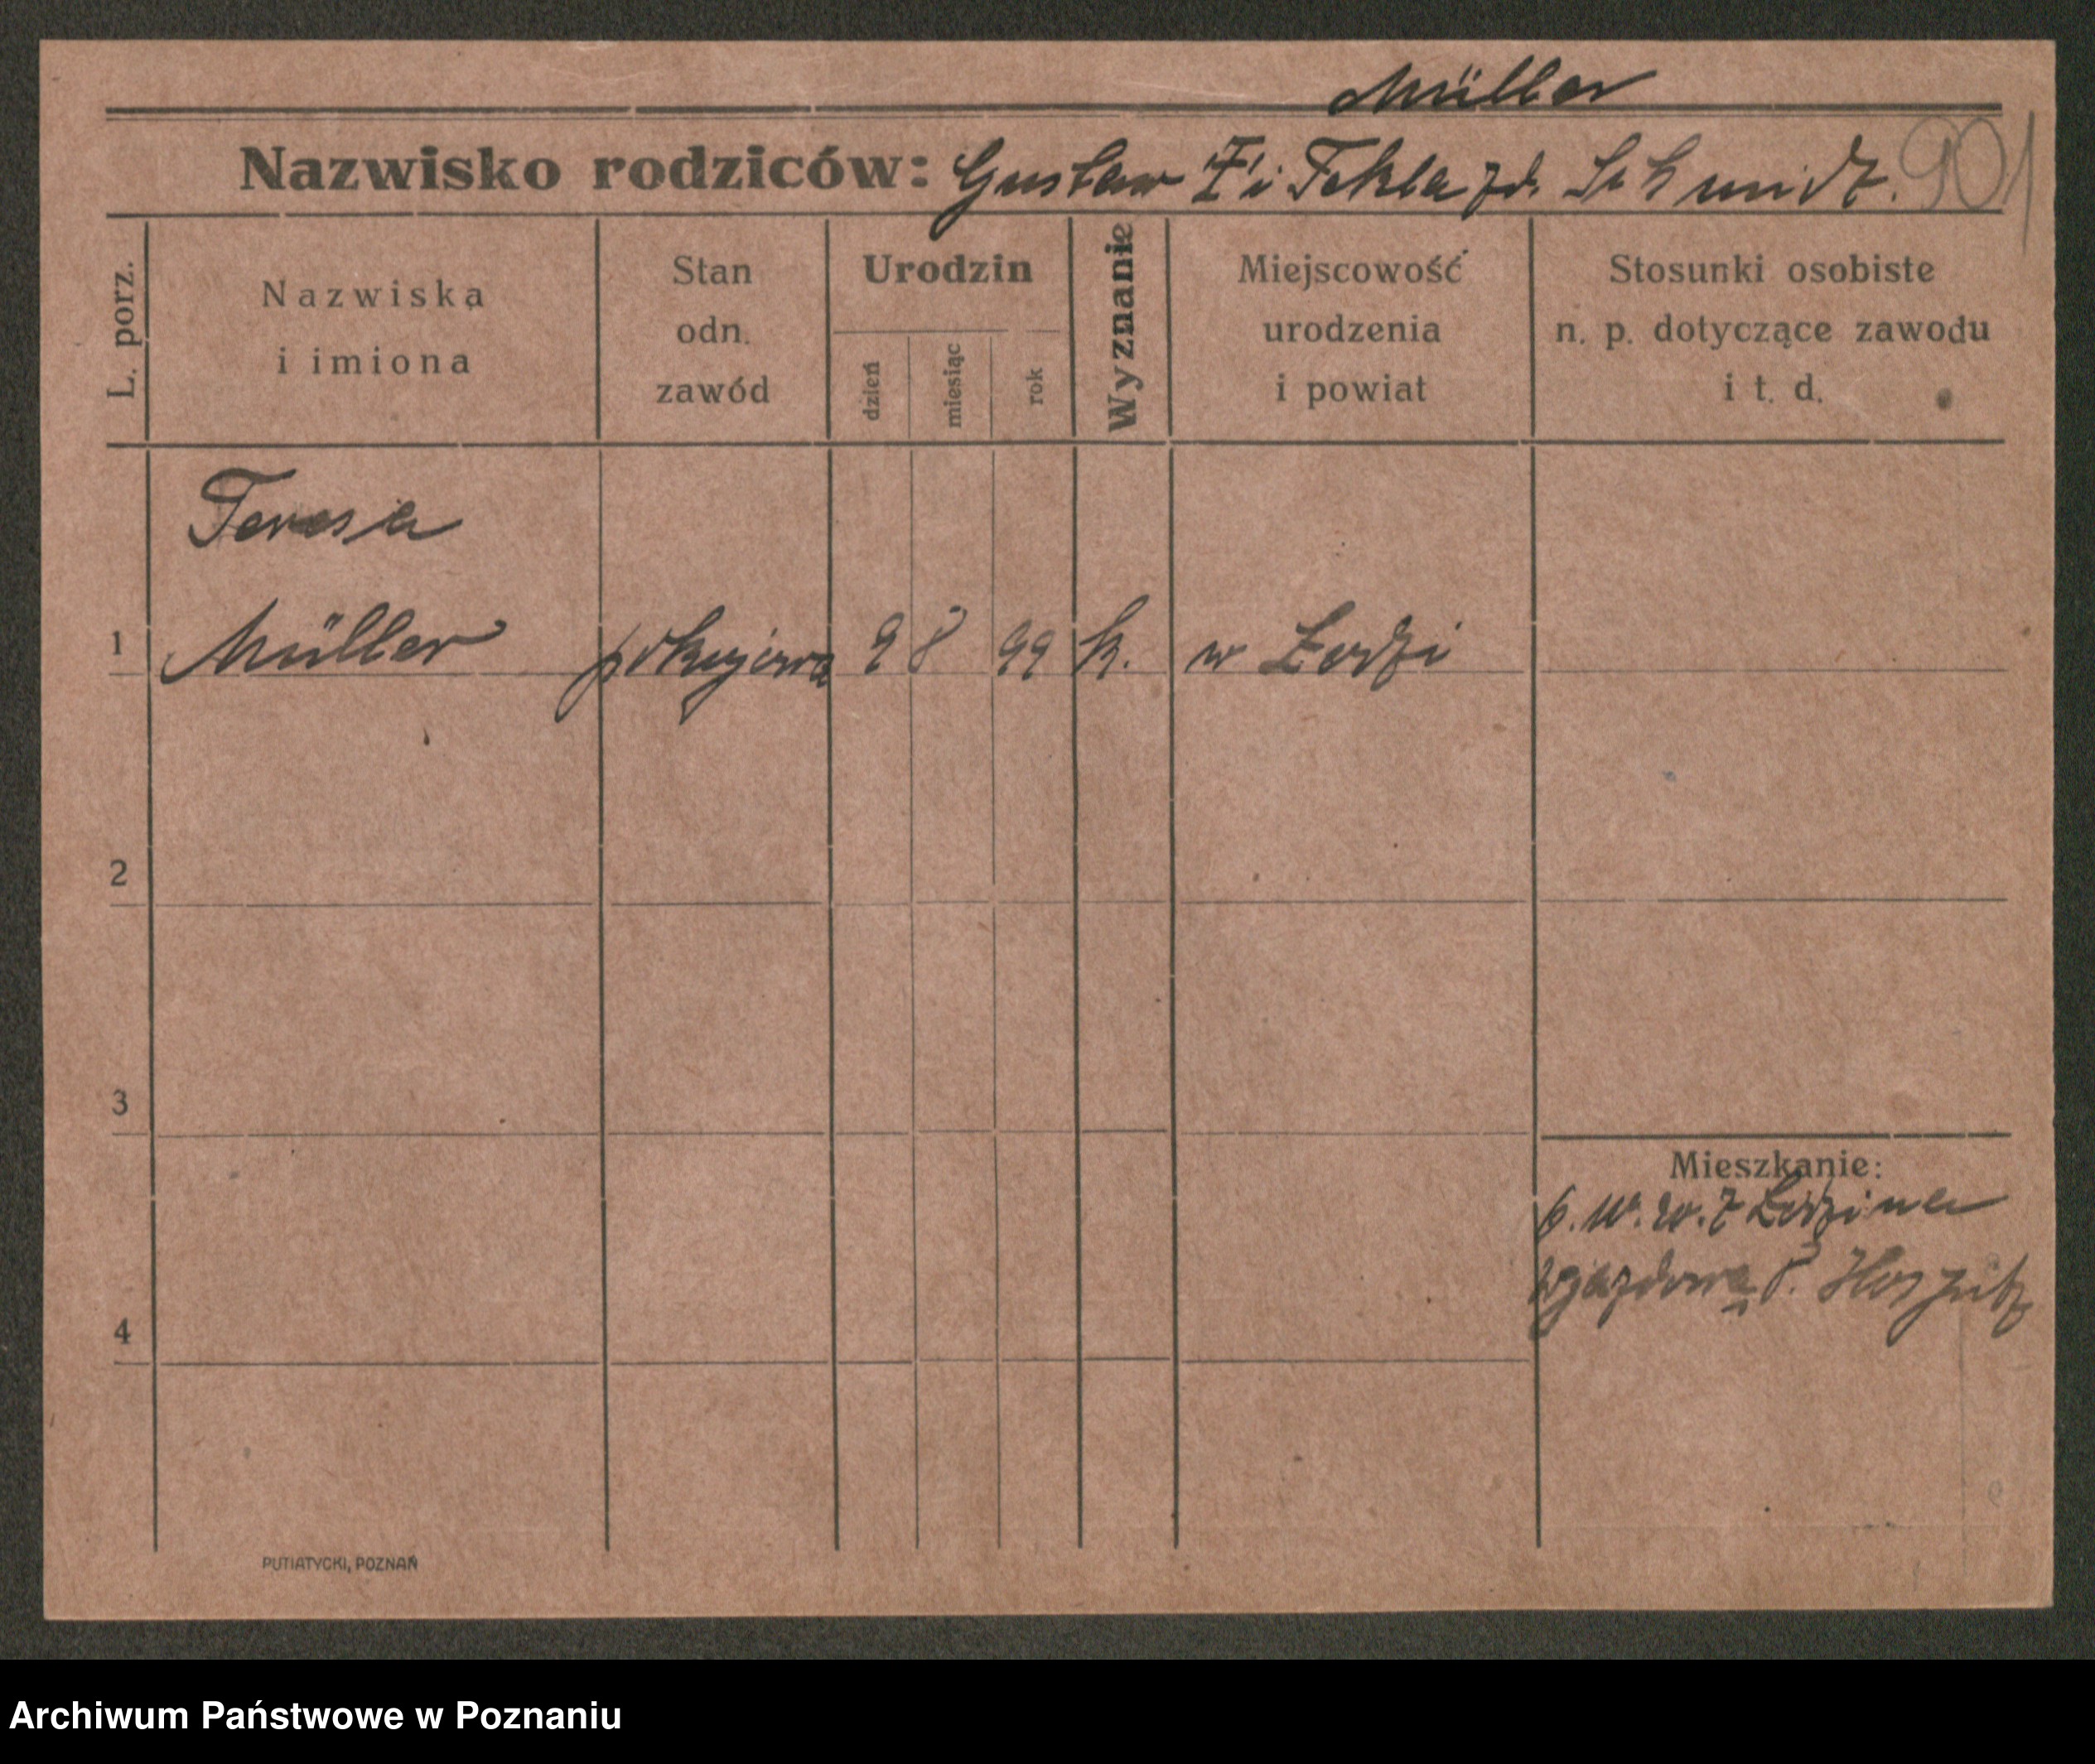 Müller
Nazwisko rodziców: Gustaw i Tekla zd. Schmidt. 901
L. porz.
Nazwiska
i imiona
Stan
odn.
zawód
Urodzin
dzień
miesiąc
rok
Wyznanie
Miejscowość
urodzenia
i powiat
Stosunki osobiste
n. p. dotyczące zawodu
i t. d.
Teresa
1 Müller pokojowa 9 8 99 k. w Łodzi
2
3
Mieszkanie:
z Łodzi na
Wjazdowa 8. Hospitz
4
PUTIATYCKI, POZNAŃ
Archiwum Państwowe w Poznaniu